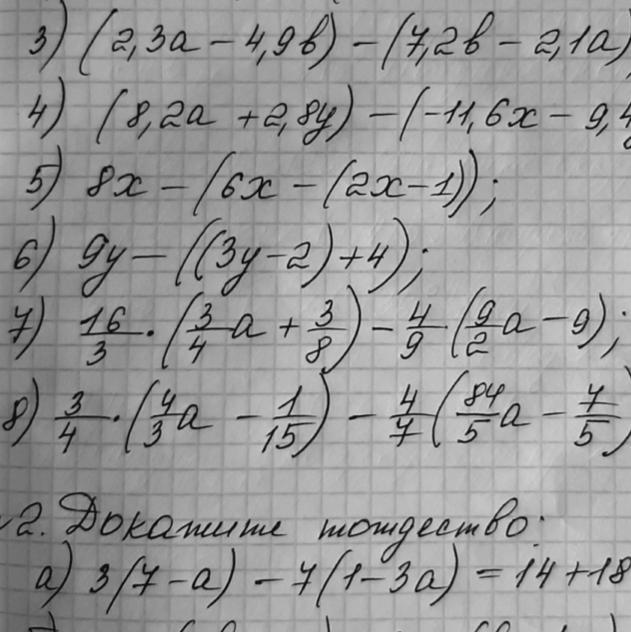 3) (2,3a - 4,9b) - (7,2b - 2,1a)
4) (8,2a + 2,8y) - (-11,6x - 9,4
5) 8x - (6x - (2x-1));
6) 9y - ((3y-2)+4);
7) 16/3 · (3/4 a + 3/8) - 4/9 (9/2 a - 9);
8) 3/4 · (4/3 a - 1/15) - 4/7 (84/5 a - 7/5)
2. Докажите тождество:
а) 3(7-a) - 7(1-3a) = 14+18